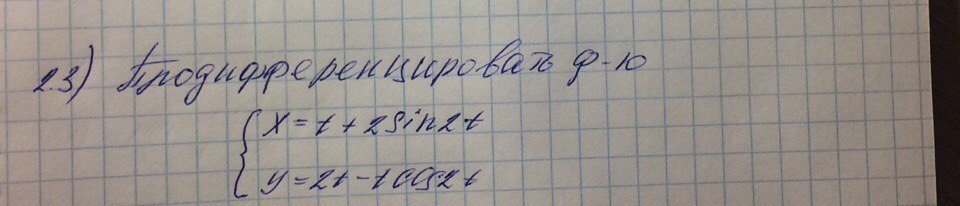 2.3) Продифференцировать ф-ю
x = t + 2 sin 2t
y = 2t - t cos 2t